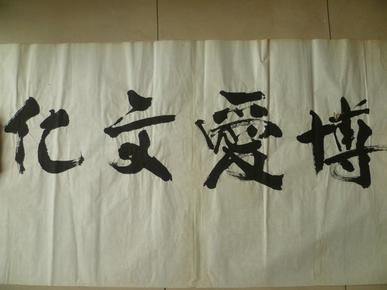 博愛文化